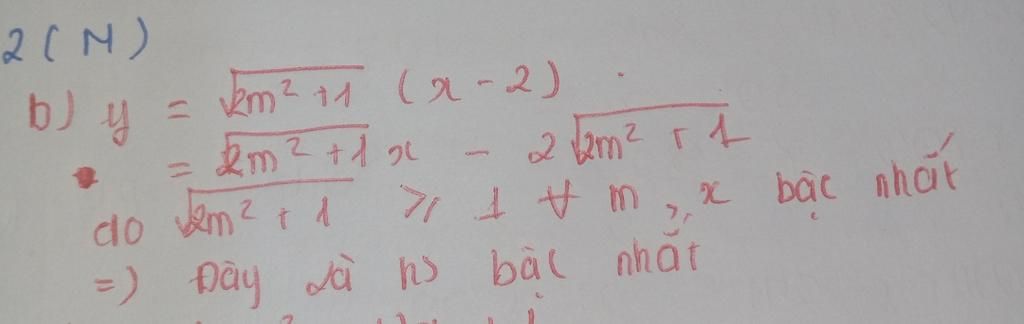 2 ( N )
b) y = √2m² + 1 (x - 2)
= √2m² + 1 x - 2√2m² + 1
do √2m² + 1 ⩾ 1 ∀ m, x bậc nhất
=) Đây là hs bậc nhất